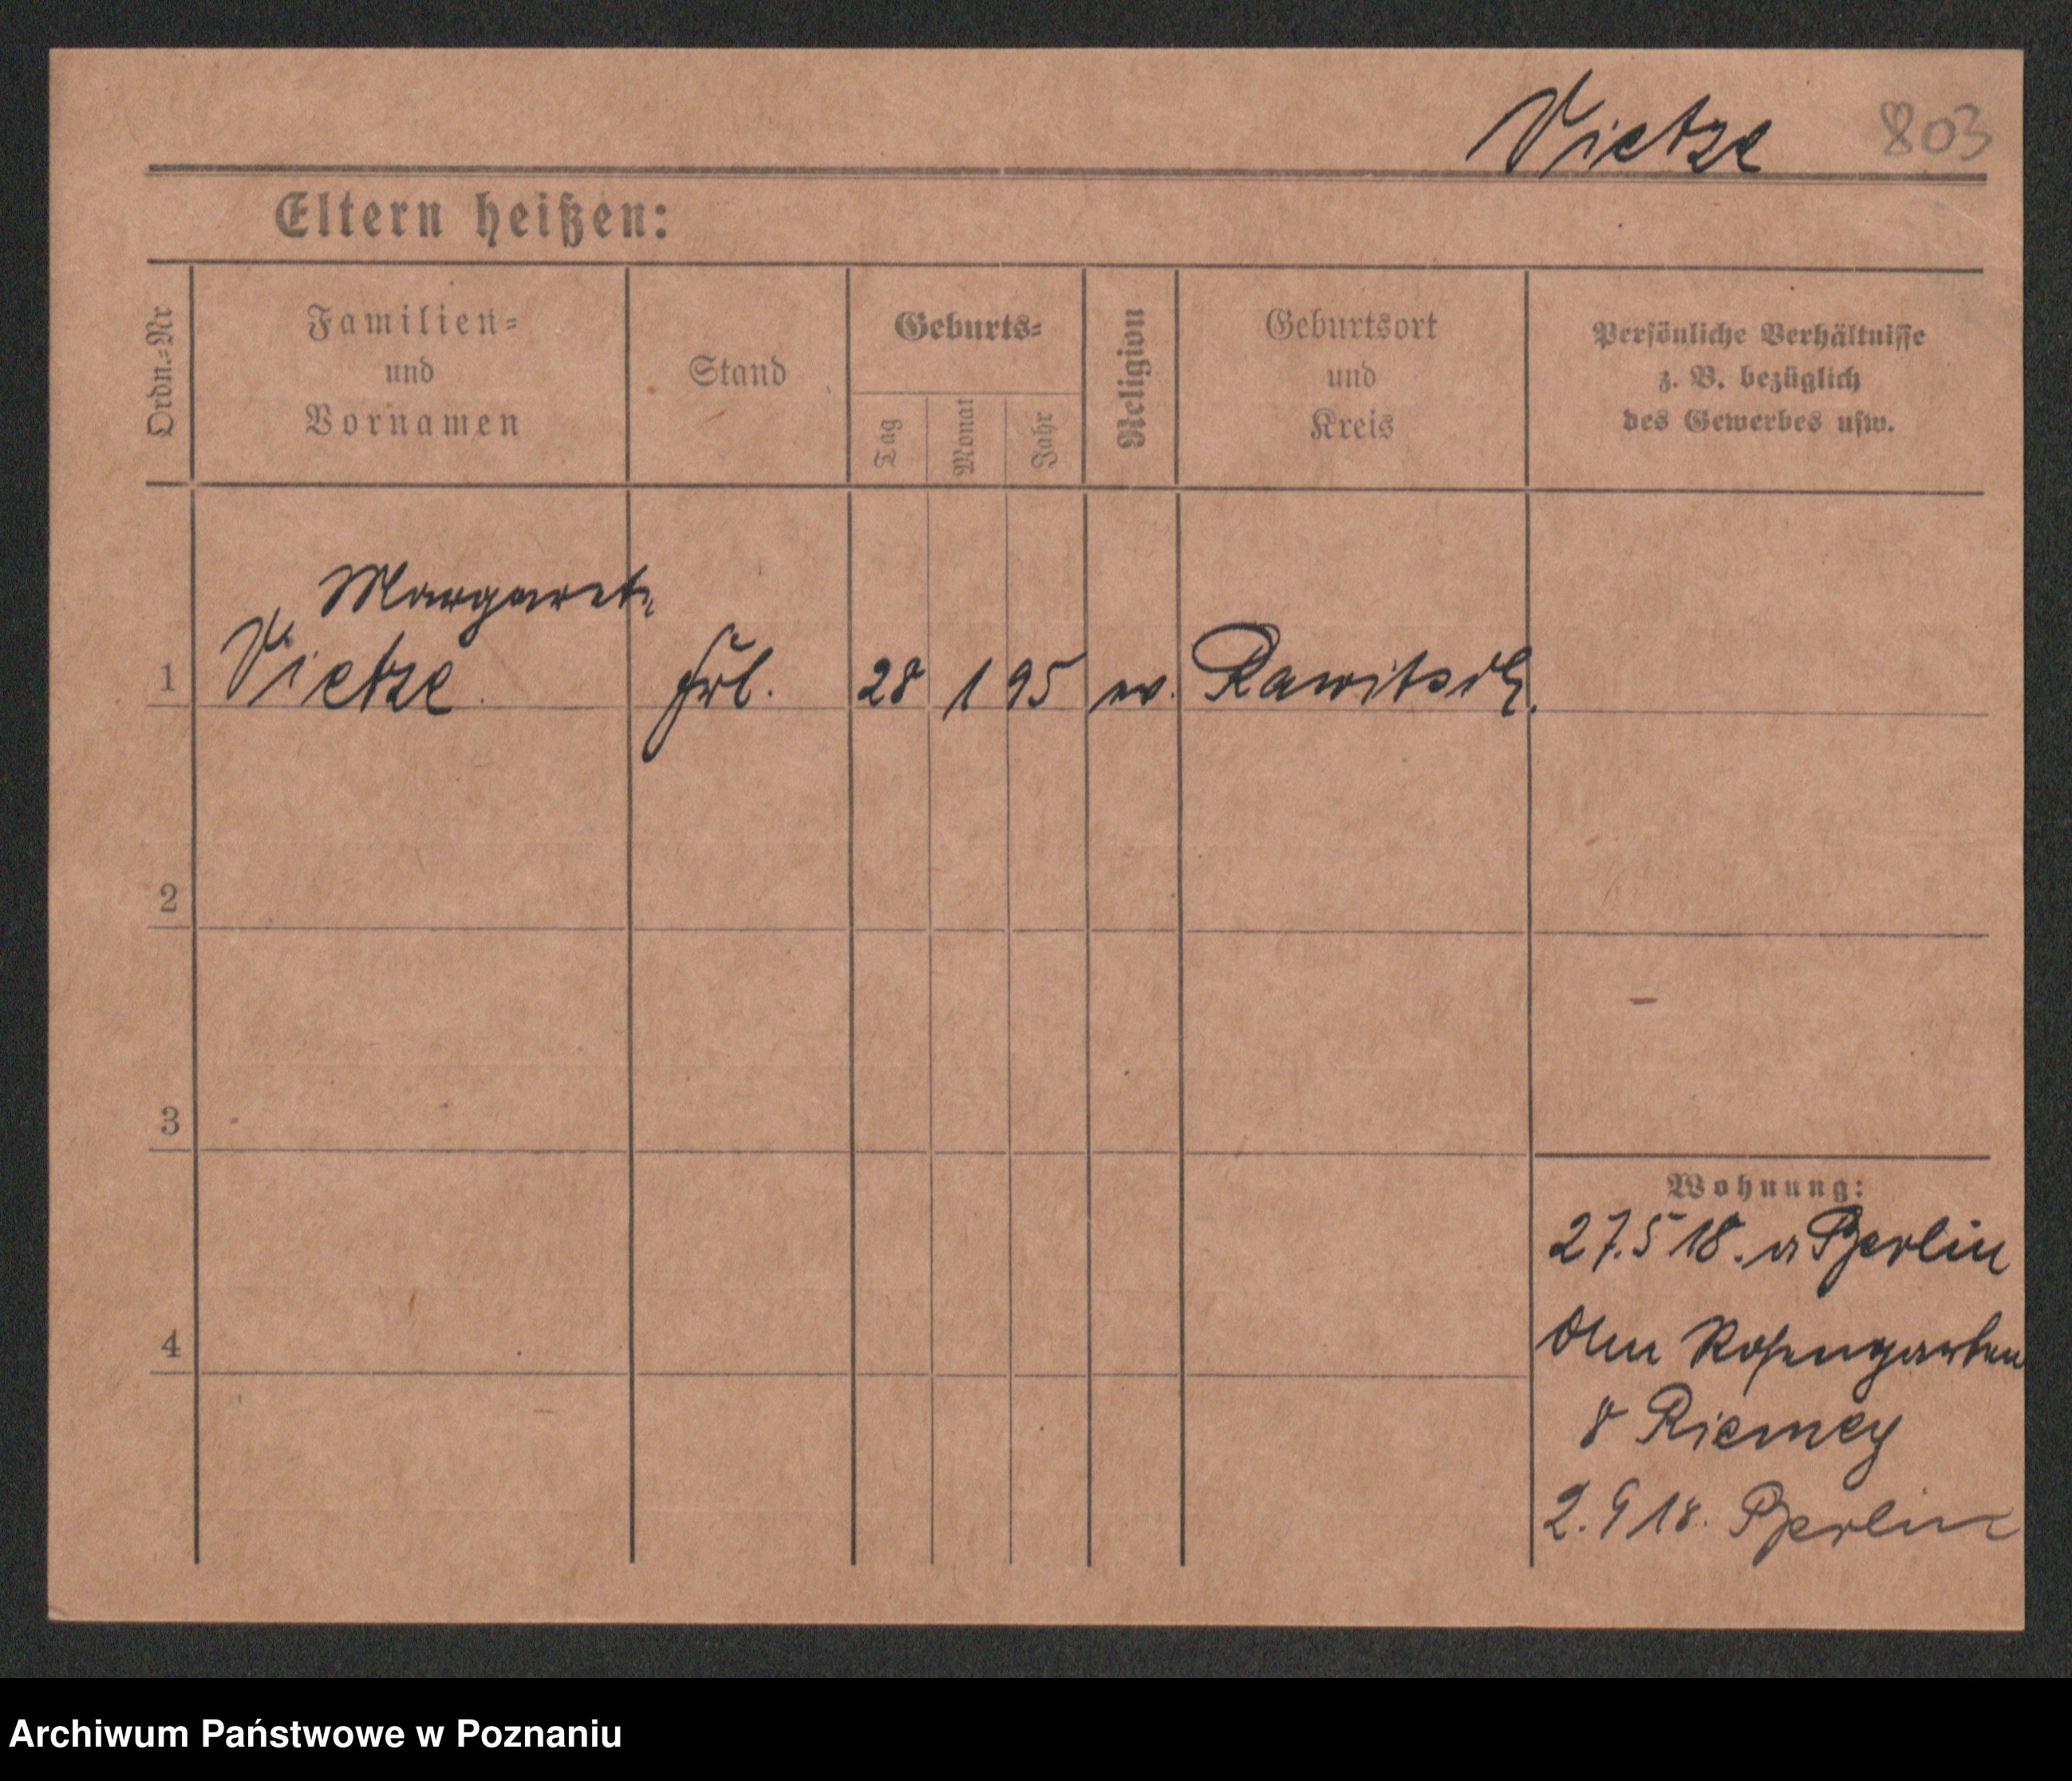 Vietze 803
Eltern heißen:
Ordn.-Nr
Familien-
und
Vornamen
Stand
Geburts-
Tag
Monat
Jahr
Religion
Geburtsort
und
Kreis
Persönliche Verhältnisse
z. B. bezüglich
des Gewerbes usw.
Margaret.
1 Vietze Frl. 28 1 95 ev. Rawitsch.
2
3
4
Wohnung:
27.5 18. v Berlin
Am Rosengarten
8 Riemey
2. 9 18. Berlin
Archiwum Państwowe w Poznaniu